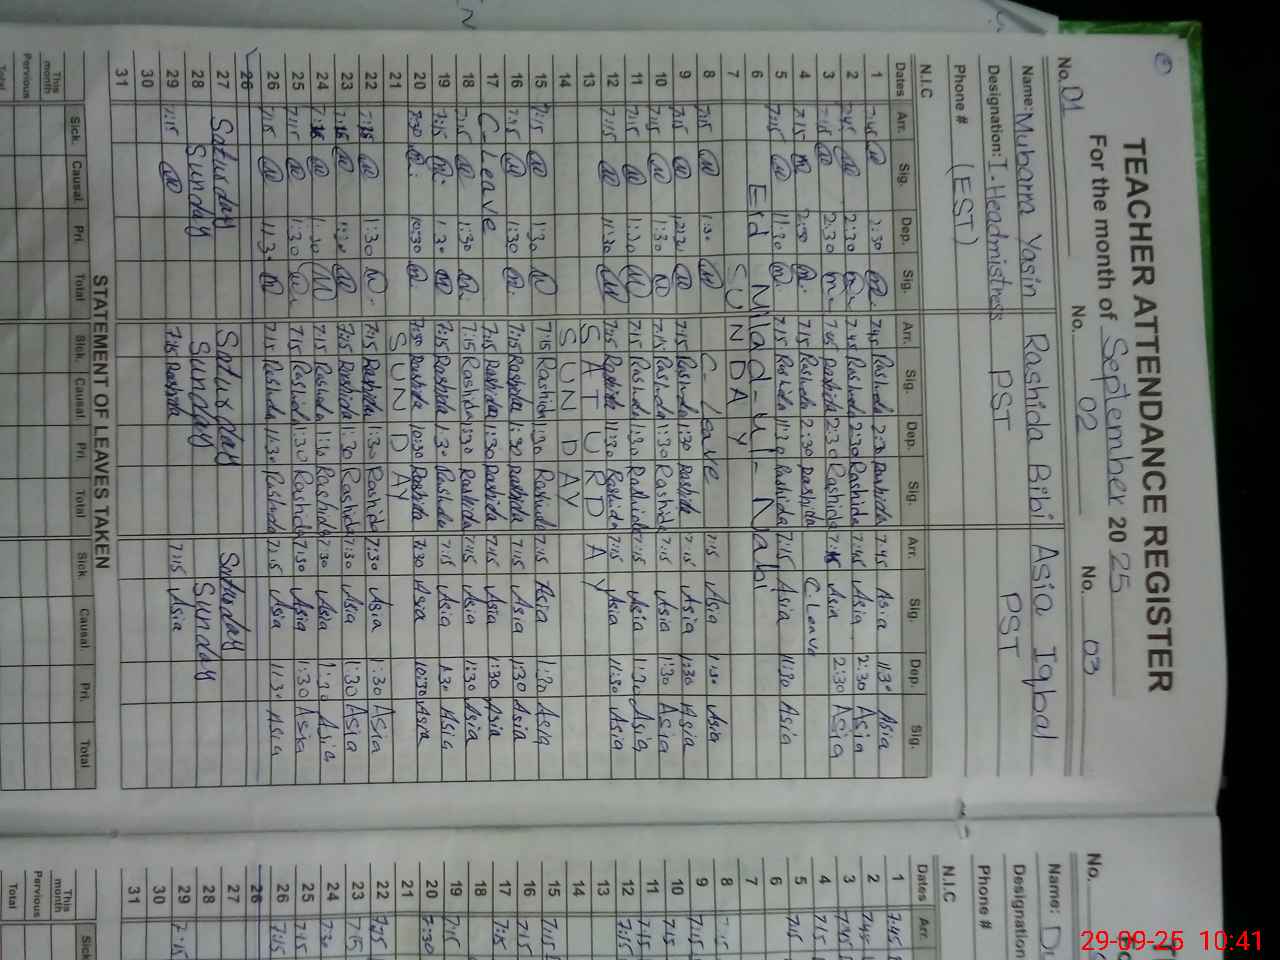 TEACHER ATTENDANCE REGISTER
For the month of September 2025
No. 01 No. 02 No. 03
Name: Mubarra Yasin Rashida Bibi Asia Iqbal
Designation: I. Headmistress PST PST
Phone # (EST)
N.I.C
Dates Arr. Sig. Dep. Sig. Arr. Sig. Dep. Sig. Arr. Sig. Dep. Sig.
1 7:45 2:30 7:45 Rashida 2:30 Rashida 7:45 Asia Asia
2 7:45 2:30 7:45 Rashida 2:30 Rashida 7:45 Asia 2:30 Asia
3 2:30 7:45 Rashida 2:30 Rashida 7:45 Asia 2:30 Asia
4 7:15 2:30 7:15 Rashida 2:30 Rashida C. Leave
5 7:15 11:30 7:15 Rashida 11:30 Rashida 7:15 Asia 11:30 Asia
6 Eid Milad-ul-Nabi
7 SUNDAY
8 7:15 1:30 C-Leave 7:15 Asia 11:30 Asia
9 7:15 7:15 Rashida 1:30 Rashida 7:15 Asia 1:30 Asia
10 7:15 1:30 7:15 Rashida 1:30 Rashida 7:15 Asia 1:30 Asia
11 7:15 1:30 7:15 Rashida 1:30 Rashida 7:15 Asia 1:30 Asia
12 7:15 11:30 7:15 Rashida 11:30 Rashida 7:15 Asia 11:30 Asia
13 SATURDAY
14 SUNDAY
15 7:15 1:30 7:15 Rashida 1:30 Rashida 7:15 Asia 1:30 Asia
16 7:15 1:30 7:15 Rashida 1:30 Rashida 7:15 Asia 1:30 Asia
17 C-Leave 7:15 Rashida 1:30 Rashida 7:15 Asia 1:30 Asia
18 7:15 1:30 7:15 Rashida 1:30 Rashida 7:15 Asia 1:30 Asia
19 7:15 1:30 7:15 Rashida 1:30 Rashida 7:15 Asia 1:30 Asia
20 7:30 10:30 7:30 Rashida 10:30 Rashida 7:30 Asia 10:30 Asia
21 SUNDAY
22 7:15 1:30 7:15 Rashida 1:30 Rashida 7:30 Asia 1:30 Asia
23 7:15 7:15 Rashida 1:30 Rashida 7:30 Asia 1:30 Asia
24 7:15 1:30 7:15 Rashida Rashida 7:30 Asia 1:30 Asia
25 7:15 1:30 7:15 Rashida 1:30 Rashida 7:30 Asia 1:30 Asia
26 7:15 11:30 7:15 Rashida 11:30 Rashida 7:15 Asia 11:30 Asia
26
27 Saturday Saturday Saturday
28 Sunday Sunday Sunday
29 7:15 7:15 Rashida 7:15 Asia
30
31
STATEMENT OF LEAVES TAKEN
Sick. Causal. Pri. Total Sick. Causal. Pri. Total Sick Causal. Pri. Total
This month
Pervious
Total
No.
Name:
Designation
Phone #
N.I.C
Dates Arr.
1 7:45
2 7:45
3 7:45
4 7:15
5 7:15
6
7
8
9 7:15
10 7:15
11 7:15
12 7:15
13
14
15 7:15
16 7:15
17 7:15
18
19 7:15
20 7:30
21
22 7:15
23 7:15
24 7:30
25 7:15
26 7:15
26
27
28
29 7:15
30
31
Sick
This month
Pervious
Total
29-09-25 10:41